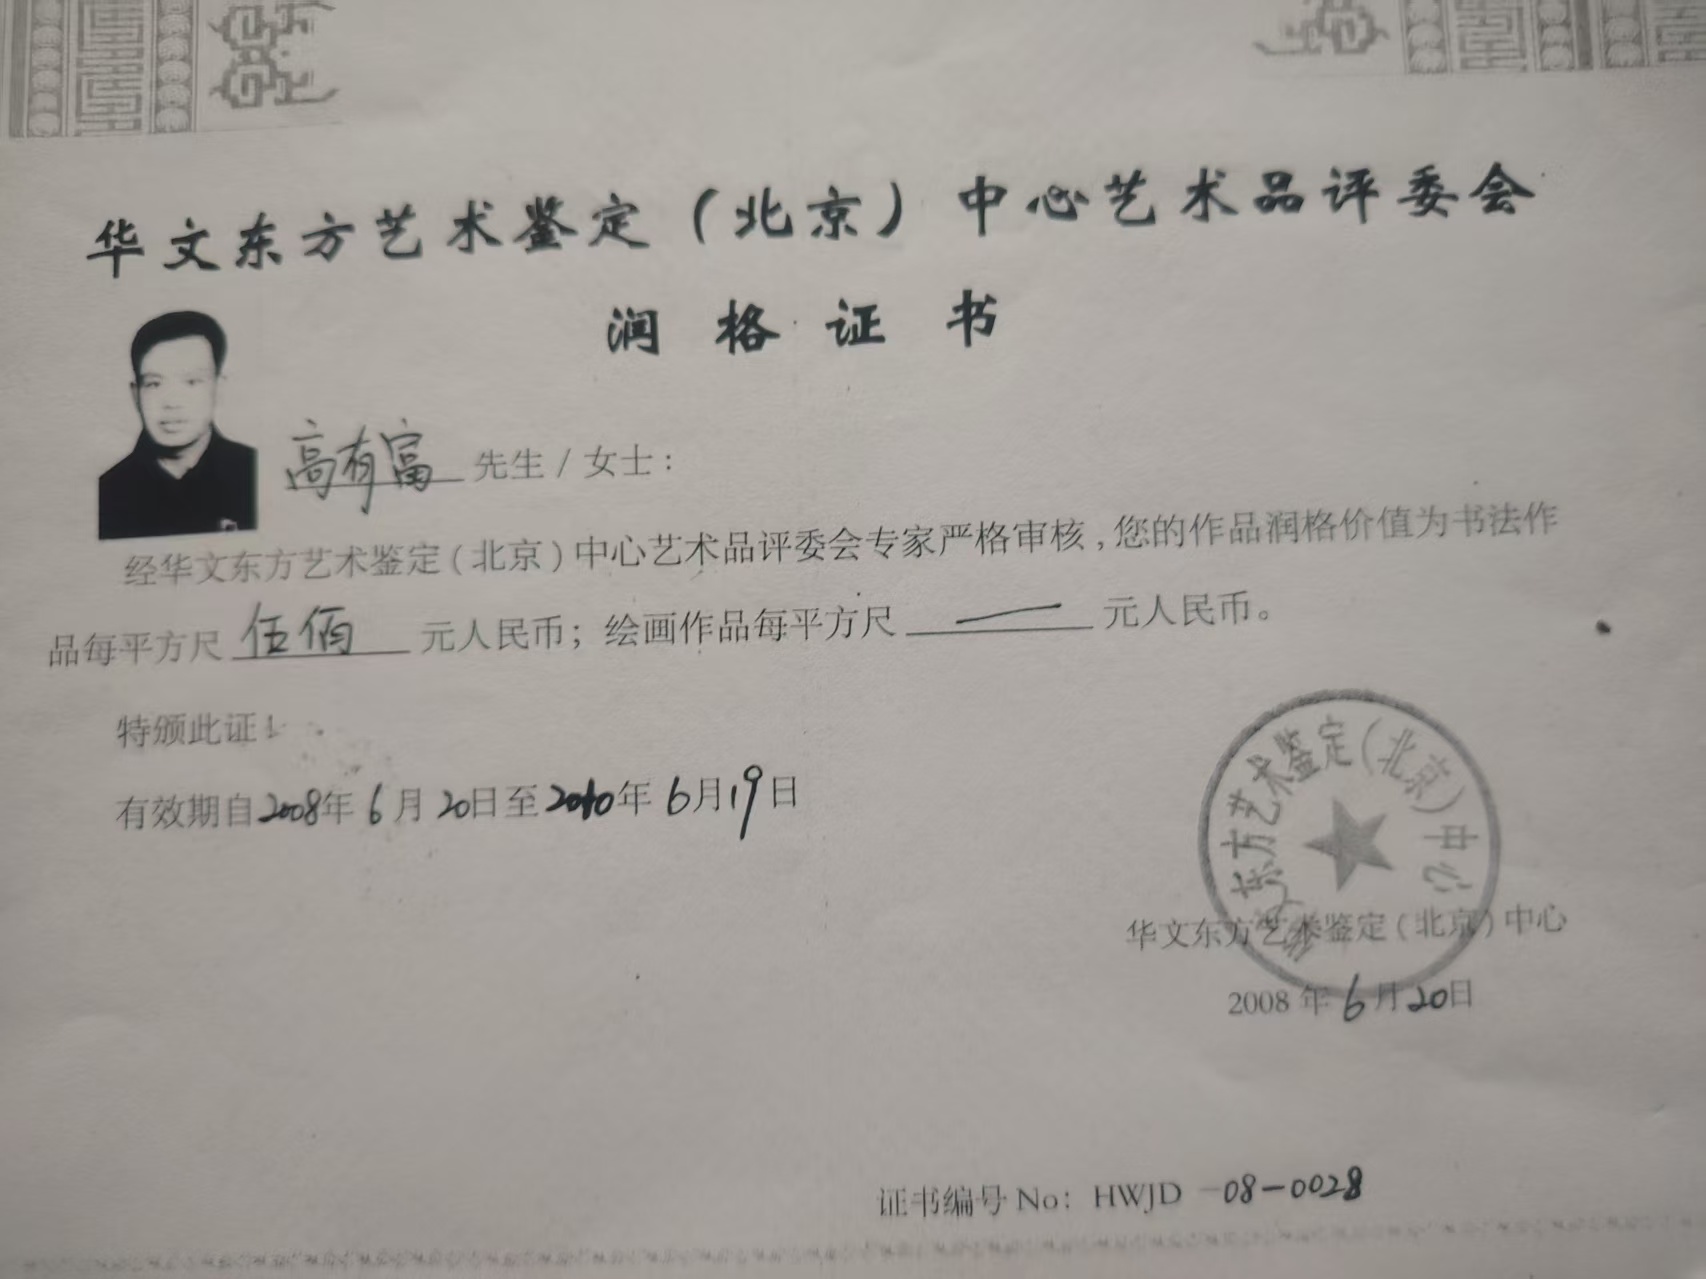 华文东方艺术鉴定（北京）中心艺术品评委会
润格证书
高有富 先生/女士：
经华文东方艺术鉴定（北京）中心艺术品评委会专家严格审核，您的作品润格价值为书法作
品每平方尺 伍佰 元人民币；绘画作品每平方尺 一 元人民币。
特颁此证！
有效期自2008年6月20日至2010年6月19日
东方艺术鉴定（北京）中心
华文东方艺术鉴定（北京）中心
2008年6月20日
证书编号No：HWJD-08-0028